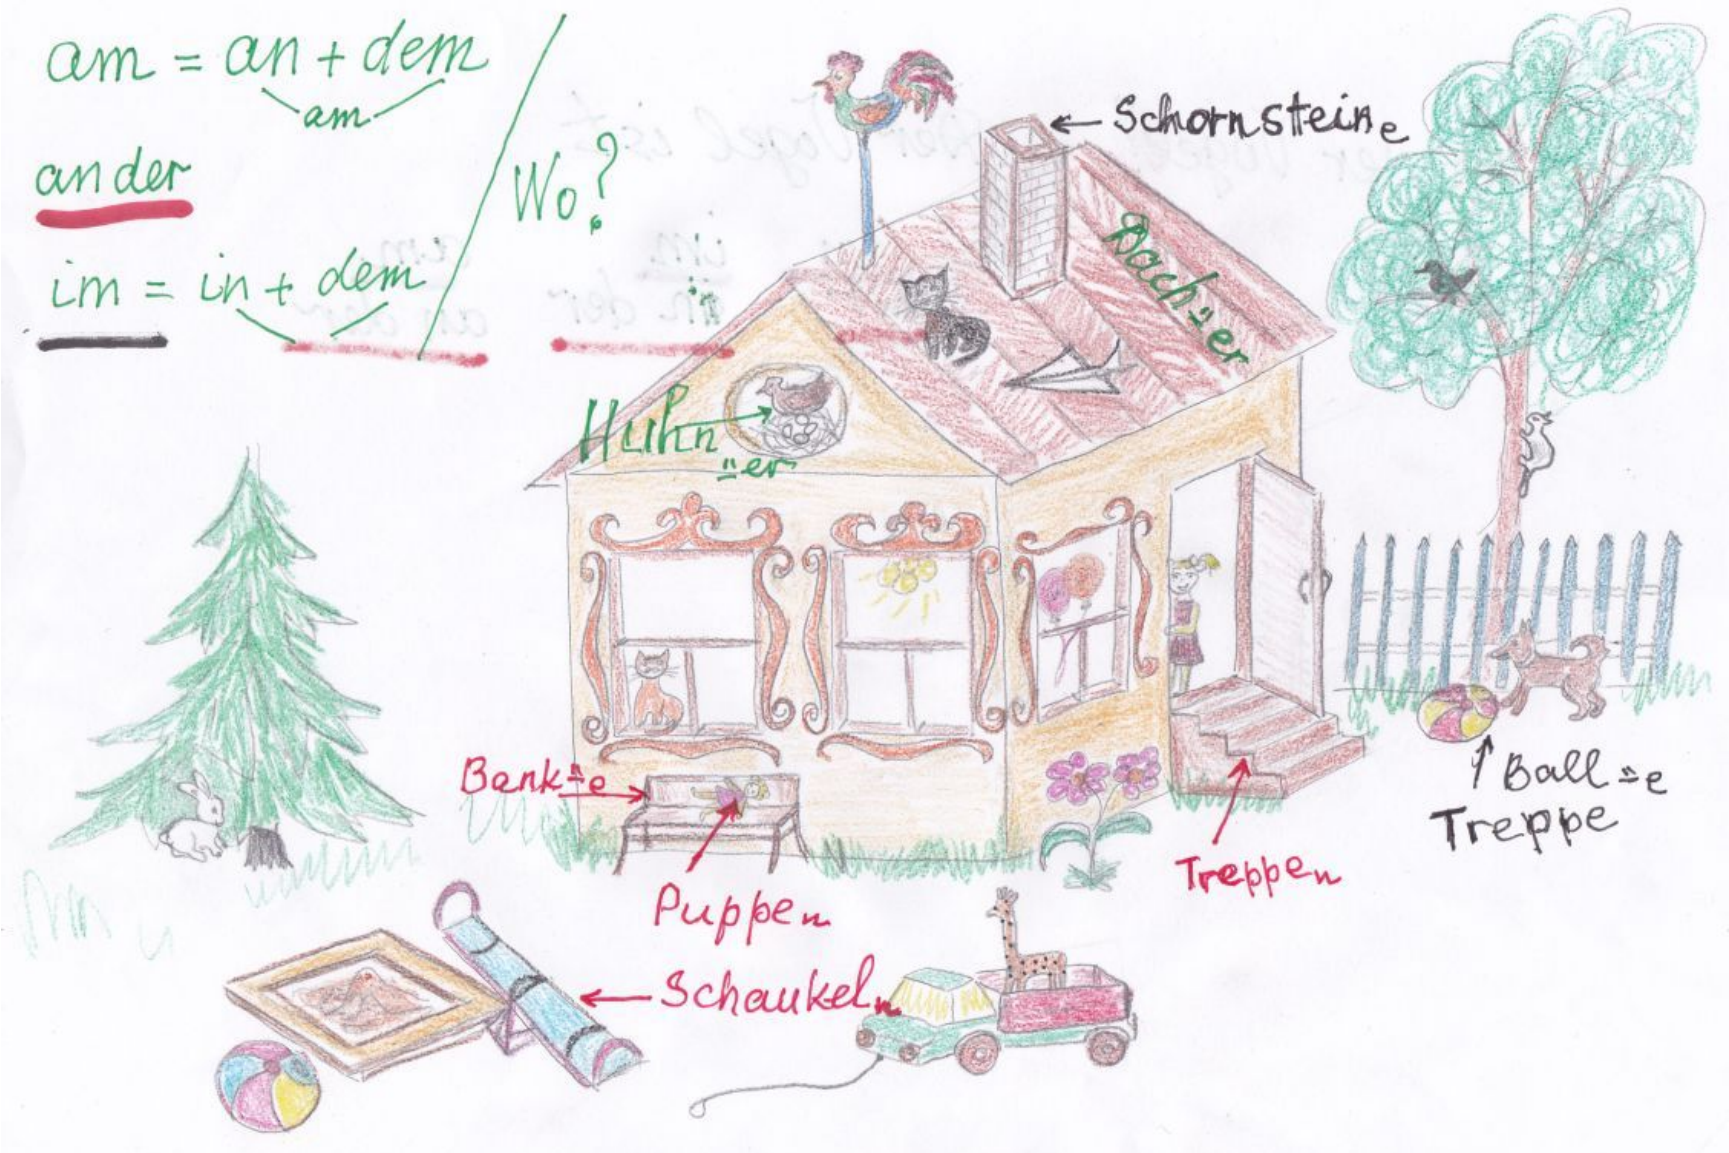 am = an + dem
am
an der
im = in + dem
Wo?
Schornstein e
Dach ⸚er
Huhn
⸚er
Bank ⸚e
Puppe n
Schaukel n
Treppe n
Ball ⸚e
Treppe